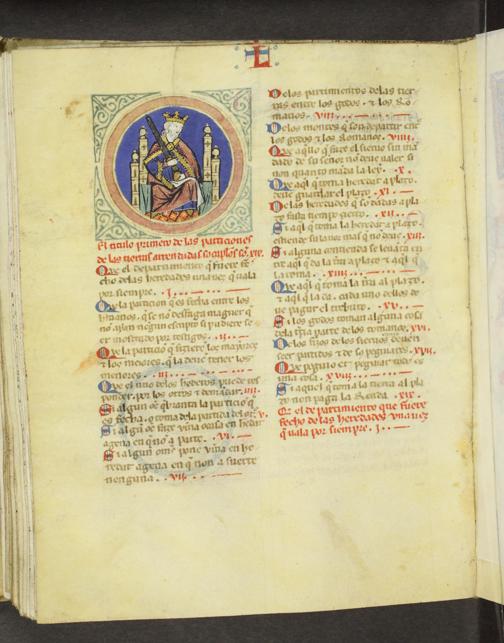 L
El titulo primero de las particiones
de las tierras arrendadas
Que el departimiento q̃ fuere fe
cho delas heredades una uez q̃ uala
por siempre . j .
Que la particion q̃ es fecha entre los
hmanos, q̃ se non desfaga maguer q̃
no aian negun escripto si pudiere se
er mostrado por testigos . ii .
Que la particiõ q̃ fiziere los mayores
τ los meiores q̃ la deue tener los
menores . iii .
Que el uno delos herederos puede res
ponder por los otros τ demãdar. iiii.
Si algun oẽ q̃branta la particiõ q̃
es fecha, q̃ toma dela partida del ot̃. v.
Si algũ oẽ fizo viña o casa en hedat
agena en q̃ no a parte . vi .
Si algun omẽ pone viña en he
redat agena en q̃ non a suerte
nenguna . vii .
De los partimientos delas tier
ras entre los godos . τ los Ro
manos . viii .
De los montes q̃ son departir entre
los godos τ los Romanos . viiii .
Que aq̃llo q̃ fize el sieruo sin man
dado de su señor no deue ualer si
non quanto manda la ley . x .
Que aq̃l q̃ toma heredat a plazo
deue guardar el plazo . xi .
De las heredades q̃ so dadas a pla
zo fasta tiempo cierto . xii .
Si aq̃l q̃ toma la heredat a plazo
estiende su lauor mas q̃ no deue. xiii.
Si alguna contienda se leuãta en
tre aq̃l q̃ da la tr̃a a plazo τ aq̃l q̃
la toma . xiiii .
Que aq̃l q̃ toma la tr̃a al plazo.
τ aq̃l q̃ la da . cada uno dellos de
ue pagar el tributo . xv .
Si los godos toman alguna cosa
dela tr̃a parte de los romanos. xvi.
De los fijos delos sieruos deuen
seer partidos τ de so pegujares . xvii.
Que peguio et peguiar todo es
una cosa . xviii .
Si aquel q̃ toma la tierra al pla
zo non paga la Renda . xix .
Et el departimiento que fuere
fecho de las heredades una uez
q̃ uala por siempre . j .